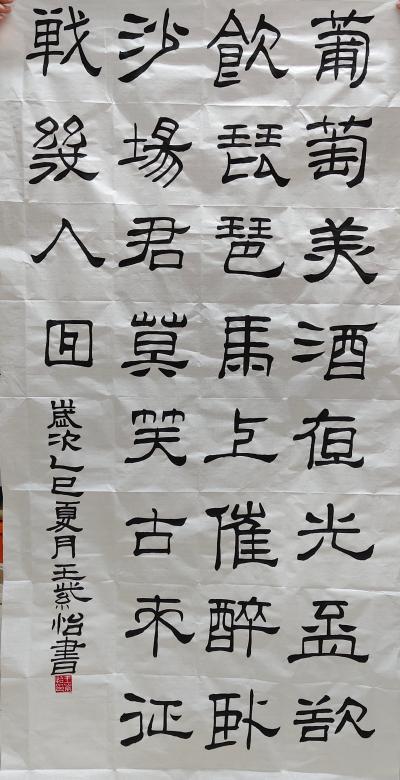 葡萄美酒夜光盃欲
飲琵琶馬上催醉臥
沙場君莫笑古来征
戦幾人回
歲次乙巳夏月王紫怡書